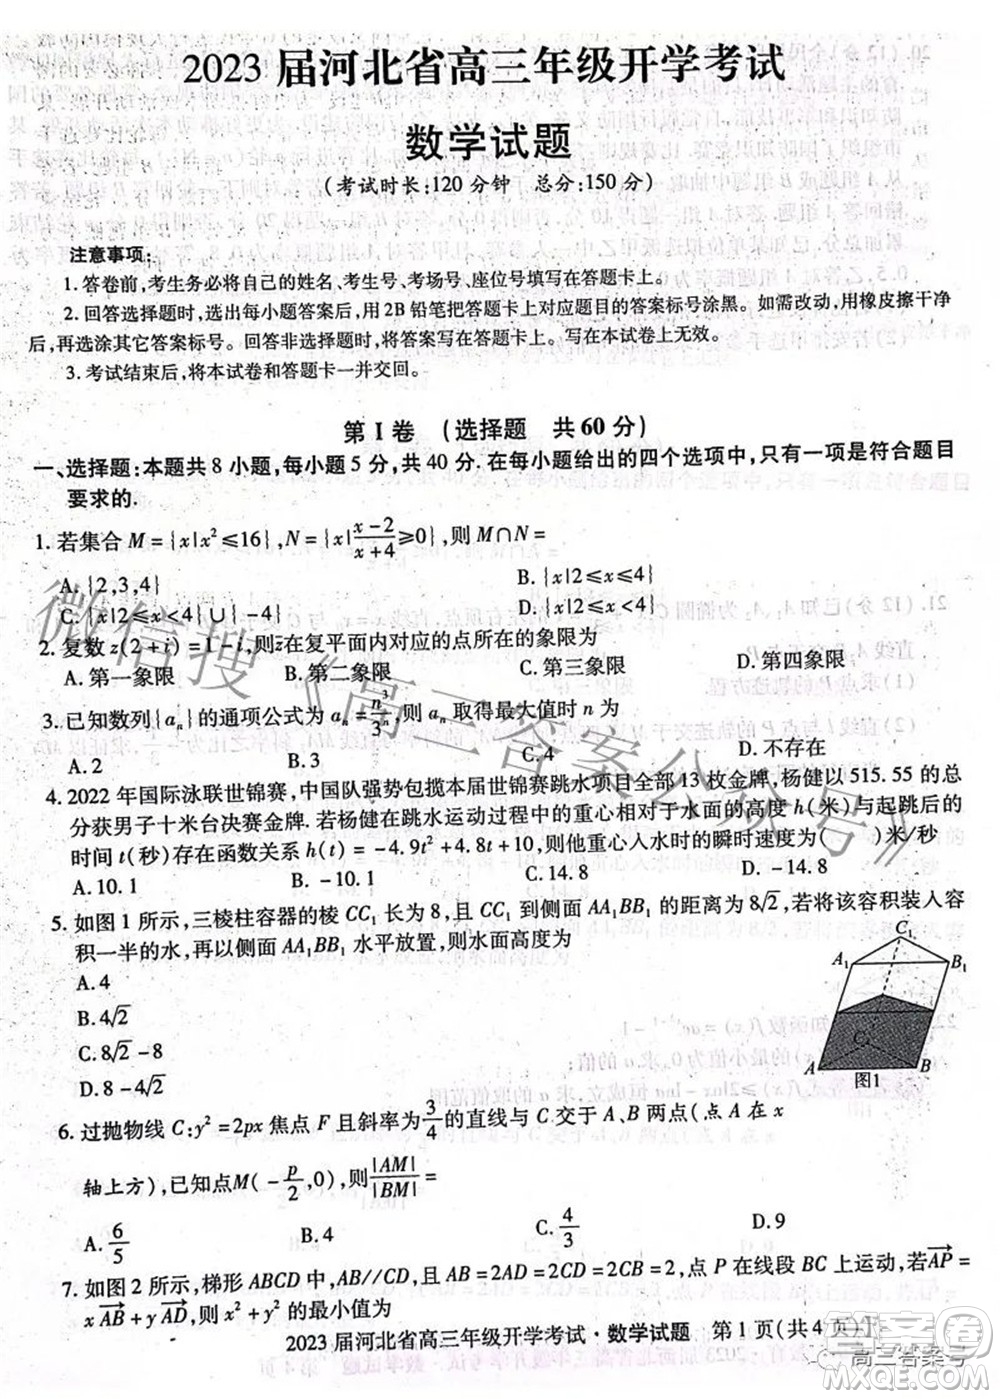 2023 届河北省高三年级开学考试
数学试题
(考试时长:120 分钟 总分:150 分)
注意事项:
1. 答卷前,考生务必将自己的姓名、考生号、考场号、座位号填写在答题卡上。
2. 回答选择题时,选出每小题答案后,用 2B 铅笔把答题卡上对应题目的答案标号涂黑。如需改动,用橡皮擦干净
后,再选涂其它答案标号。回答非选择题时,将答案写在答题卡上。写在本试卷上无效。
3. 考试结束后,将本试卷和答题卡一并交回。
第 I 卷 (选择题 共 60 分)
一、选择题:本题共 8 小题,每小题 5 分,共 40 分. 在每小题给出的四个选项中,只有一项是符合题目
要求的.
1. 若集合 M={x|x²≤16},N={x|(x-2)/(x+4)≥0},则 M∩N=
A. {2,3,4} B. {x|2≤x≤4}
C. {x|2≤x<4}∪{-4} D. {x|2≤x≤4}
2. 复数 z(2+i)=1-i,则z̄在复平面内对应的点所在的象限为
A. 第一象限 B. 第二象限 C. 第三象限 D. 第四象限
3. 已知数列{aₙ}的通项公式为 aₙ=n³/3ⁿ,则 aₙ 取得最大值时 n 为
A. 2 B. 3 C. 4 D. 不存在
4. 2022 年国际泳联世锦赛,中国队强势包揽本届世锦赛跳水项目全部 13 枚金牌. 杨健以 515.55 的总
分获男子十米台决赛金牌. 若杨健在跳水运动过程中的重心相对于水面的高度 h(米)与起跳后的
时间 t(秒)存在函数关系 h(t)=-4.9t²+4.8t+10,则他重心入水时的瞬时速度为( )米/秒
A. 10.1 B. -10.1 C. 14.8 D. -14.8
5. 如图 1 所示,三棱柱容器的棱 CC₁ 长为 8,且 C₁ 到侧面 AA₁BB₁ 的距离为 8√2,若将该容积装入容
积一半的水,再以侧面 AA₁BB₁ 水平放置,则水面高度为
A. 4
B. 4√2
C. 8√2-8
D. 8√2
C₁
A₁
B₁
C
A
B
图1
6. 过抛物线 C:y²=2px 焦点 F 且斜率为 3/4 的直线与 C 交于 A、B 两点(点 A 在 x
轴上方),已知点M(-p/2,0),则|AM|/|BM|=
A. 6/5 B. 4 C. 4/3 D. 9
7. 如图 2 所示,梯形 ABCD 中,AB//CD,且 AB=2AD=2CD=2CB=2,点 P 在线段 BC 上运动,若AP=
xAB+yAD,则 x²+y² 的最小值为
2023 届河北省高三年级开学考试·数学试题 第 1 页(共 4 页)
微信搜《高三答案公众号》
高三答案号
答案圈
MXQE.COM